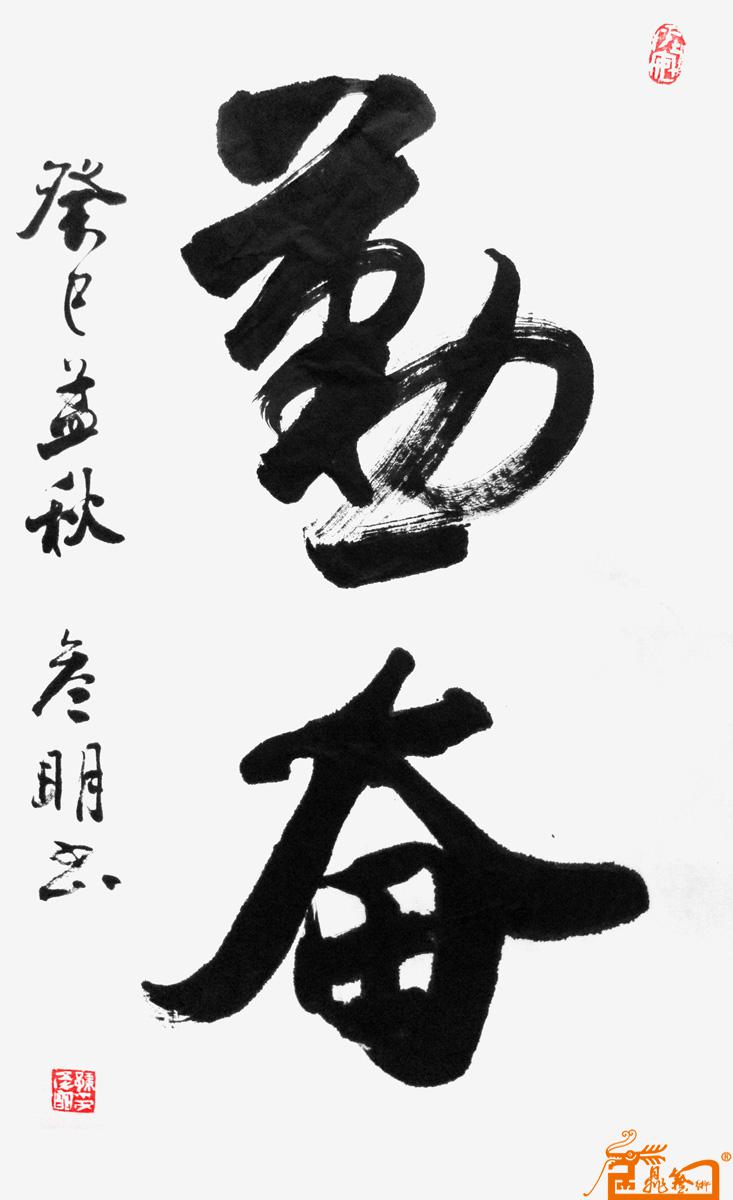 勤奋
癸巳孟秋 明书